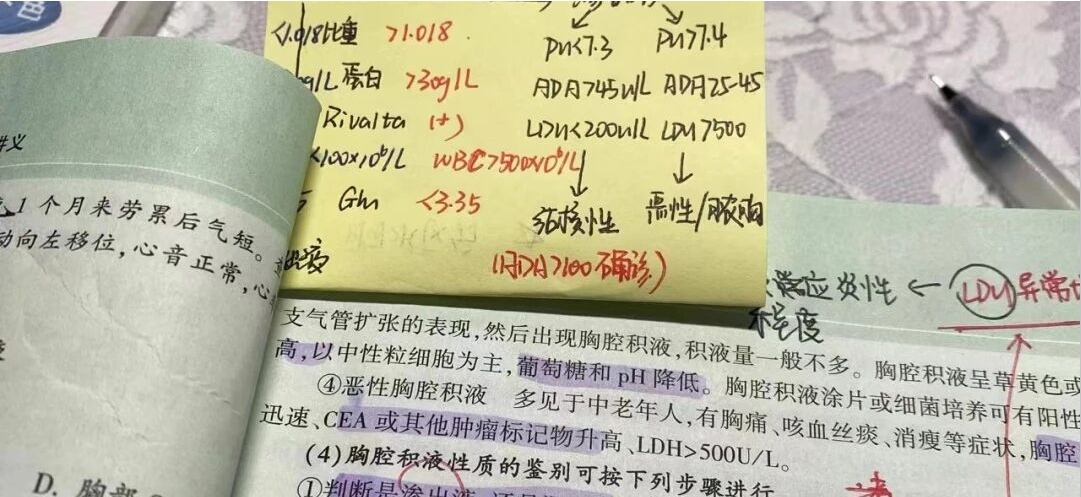 <1.018 比重 >1.018
PH<7.3 PH>7.4
g/L 蛋白 >30g/L
ADA>45U/L ADA25-45
Rivalta (+)
LDH<200u/L LDH>500
<100×10⁶/L WBC>500×10⁶/L
Glu <3.35
结核性 恶性/脓胸
(ADA>100确诊)
炎性 ← LDH异常
程度
讲义
1个月来劳累后气短。
动向左移位,心音正常,心
D. 胸部
支气管扩张的表现,然后出现胸腔积液,积液量一般不多。胸腔积液呈草黄色或
高,以中性粒细胞为主,葡萄糖和 pH 降低。胸腔积液涂片或细菌培养可有阳性
④恶性胸腔积液 多见于中老年人,有胸痛、咳血丝痰、消瘦等症状,胸腔
迅速、CEA 或其他肿瘤标记物升高、LDH>500U/L。
(4)胸腔积液性质的鉴别可按下列步骤进行
①判断是渗出液